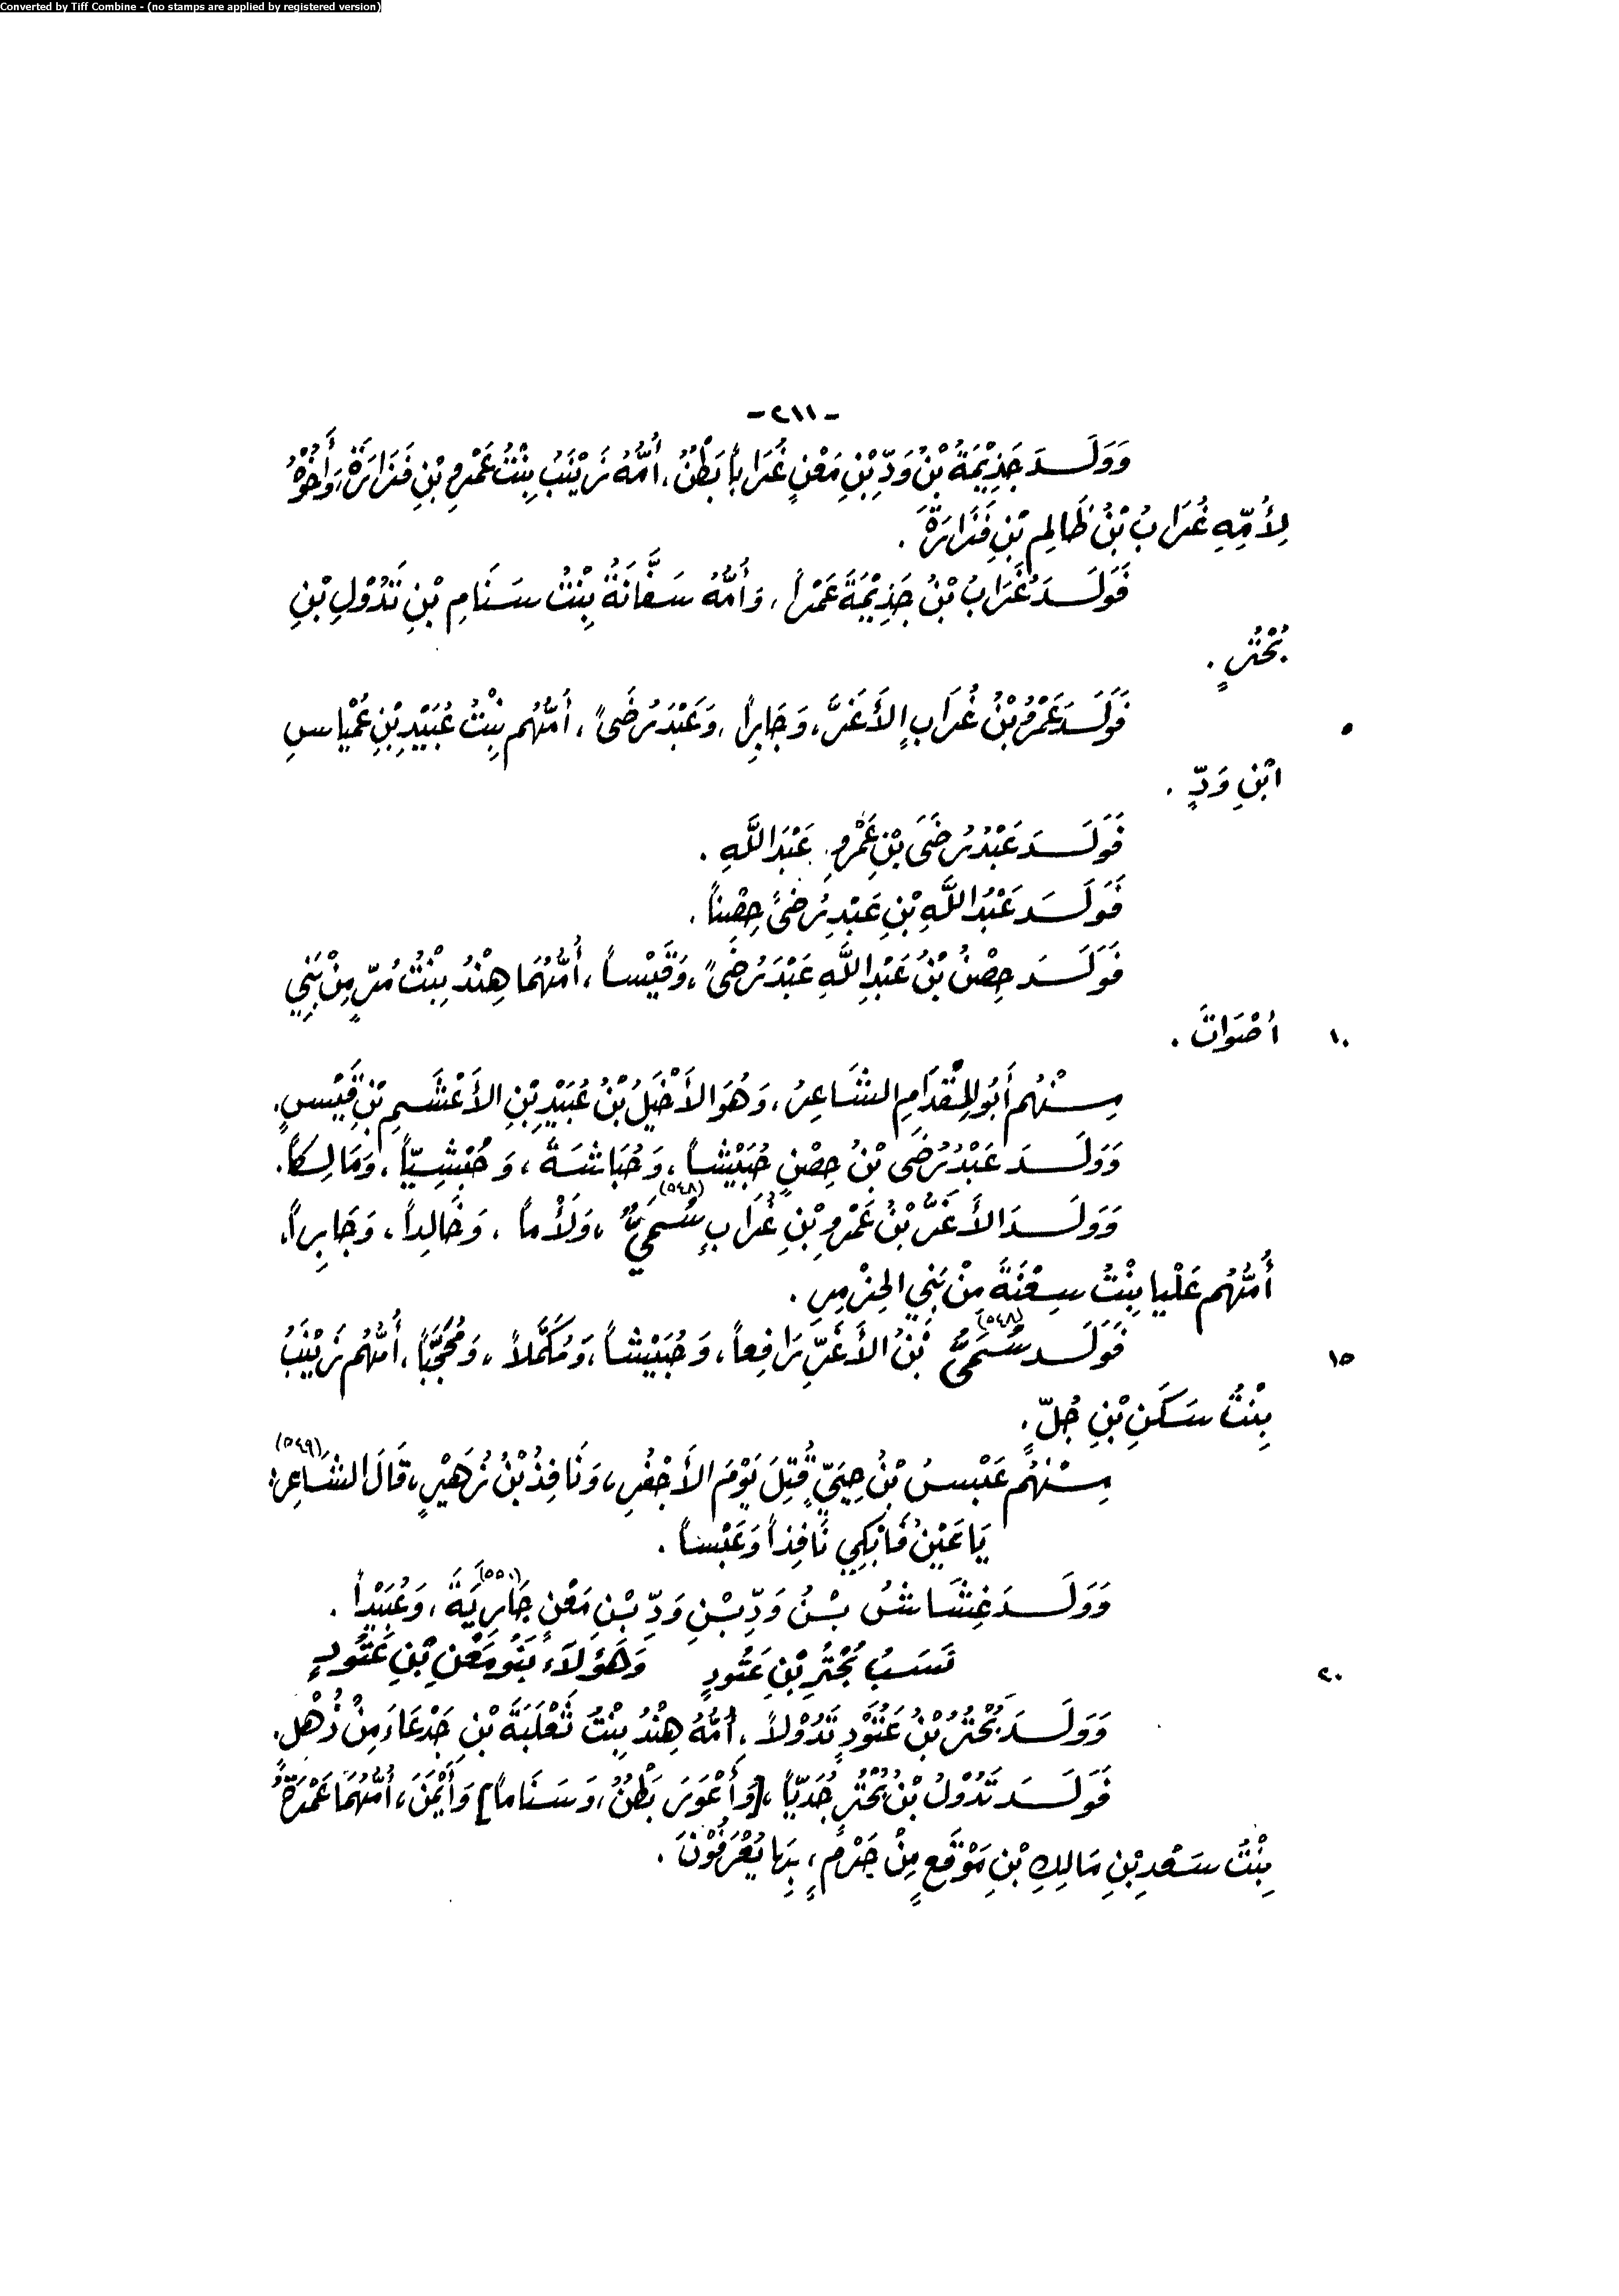 Converted by Tiff Combine - (no stamps are applied by registered version)
-٢١١-
وَوَلَدَ جَذِيْمَةُ بْنُ وَدِّ بْنِ مَعْنٍ غُرَاباً بَطْنٌ، أُمُّهُ زَيْنَبُ بِنْتُ عَمْرِو بْنِ فَزَارَةَ، وَأَخُوْهُ
لِأُمِّهِ غُرَابُ بْنُ ظَالِمِ بْنِ فَزَارَةَ .
فَوَلَدَ غُرَابُ بْنُ جَذِيْمَةَ عَمْراً، وَأُمُّهُ سَفَّانَةُ بِنْتُ سَنَامِ بْنِ تَدُوْلِ بْنِ
بُحْتُرٍ .
٥ فَوَلَدَ عَمْرُو بْنُ غُرَابٍ الأَغَرَّ، وَجَابِراً، وَعَبْدَ رُضَىً، أُمُّهُم بِنْتُ عُبَيْدِ بْنِ عَمْيَاسِ
ابْنِ وَدٍّ .
فَوَلَدَ عَبْدُ رُضَى بْنِ عَمْرٍو عَبْدَ اللَّهِ .
فَوَلَدَ عَبْدُ اللَّهِ بْنِ عَبْدِ رُضَىً حِصْناً .
فَوَلَدَ حِصْنُ بْنُ عَبْدِ اللَّهِ عَبْدَ رُضَىً، وَقَيْساً، أُمُّهُمَا هِنْدُ بِنْتُ مُرٍّ مِنْ بَنِي
١٠ أَصْوَاتَ .
مِنْهُم أَبُو المِقْدَامِ الشَّاعِرُ، وَهُوَ الأَخْيَلُ بْنُ عُبَيْدِ بْنِ الأَعْشَمِ بْنِ قَيْسٍ.
وَوَلَدَ عَبْدُ رُضَى بْنُ حِصْنٍ حُبَيْشاً، وَحُبَاشَةَ، وَحُبْشِيّاً، وَمَالِكاً.
وَوَلَدَ الأَغَرُّ بْنُ عَمْرِو بْنِ غُرَابٍ سُمَيٌّ (٥٤٨)، وَلَأْماً، وَخَالِداً، وَجَابِراً،
أُمُّهُم عَلْيَا بِنْتُ سِعْنَةَ مِنْ بَنِي الحِزْمِرِ .
١٥ فَوَلَدَ سُمَيُّ (٥٤٨) بْنُ الأَغَرِّ رَافِعاً، وَحُبَيْشاً، وَمُكَمَّلاً، وَمُحَجَّباً، أُمُّهُم زَيْنَبُ
بِنْتُ سَكَنِ بْنِ جُلٍّ .
مِنْهُم عَبْسُ بْنُ حِيَيٍّ قُتِلَ يَوْمَ الأَجْفُرِ، وَنَافِذُ بْنُ زُهَيْرٍ، قَالَ الشَّاعِرُ (٥٤٩):
يَا عَيْنُ فَابْكِي نَافِذاً وَعَبْساً .
وَوَلَدَ غِشَاشُ بْنُ وَدِّ بْنِ وَدِّ بْنِ مَعْنٍ جَارِيَةَ (٥٥٠)، وَعُبَيْداً .
٢٠ نَسَبُ بُحْتُرِ بْنِ عَتُودٍ وَهَؤُلَاءِ بَنُو مَعْنِ بْنِ عَتُودٍ
وَوَلَدَ بُحْتُرُ بْنُ عَتُوْدٍ تَدُوْلاً، أُمُّهُ هِنْدُ بِنْتُ ثَعْلَبَةَ بْنِ جَدْعَاءَ مِنْ ذُهْلٍ.
فَوَلَدَ تَدُوْلُ بْنُ بُحْتُرٍ جُدَيّاً، [وَأَعْوَرَ بَطْنٌ، وَسَنَاماً] وَأَيْمَنَ، أُمُّهُمَا عَمْرَةُ
بِنْتُ سَعْدِ بْنِ مَالِكِ بْنِ مَوْقَعٍ مِنْ جَرْمٍ، بِهَا يُعْرَفُوْنَ .